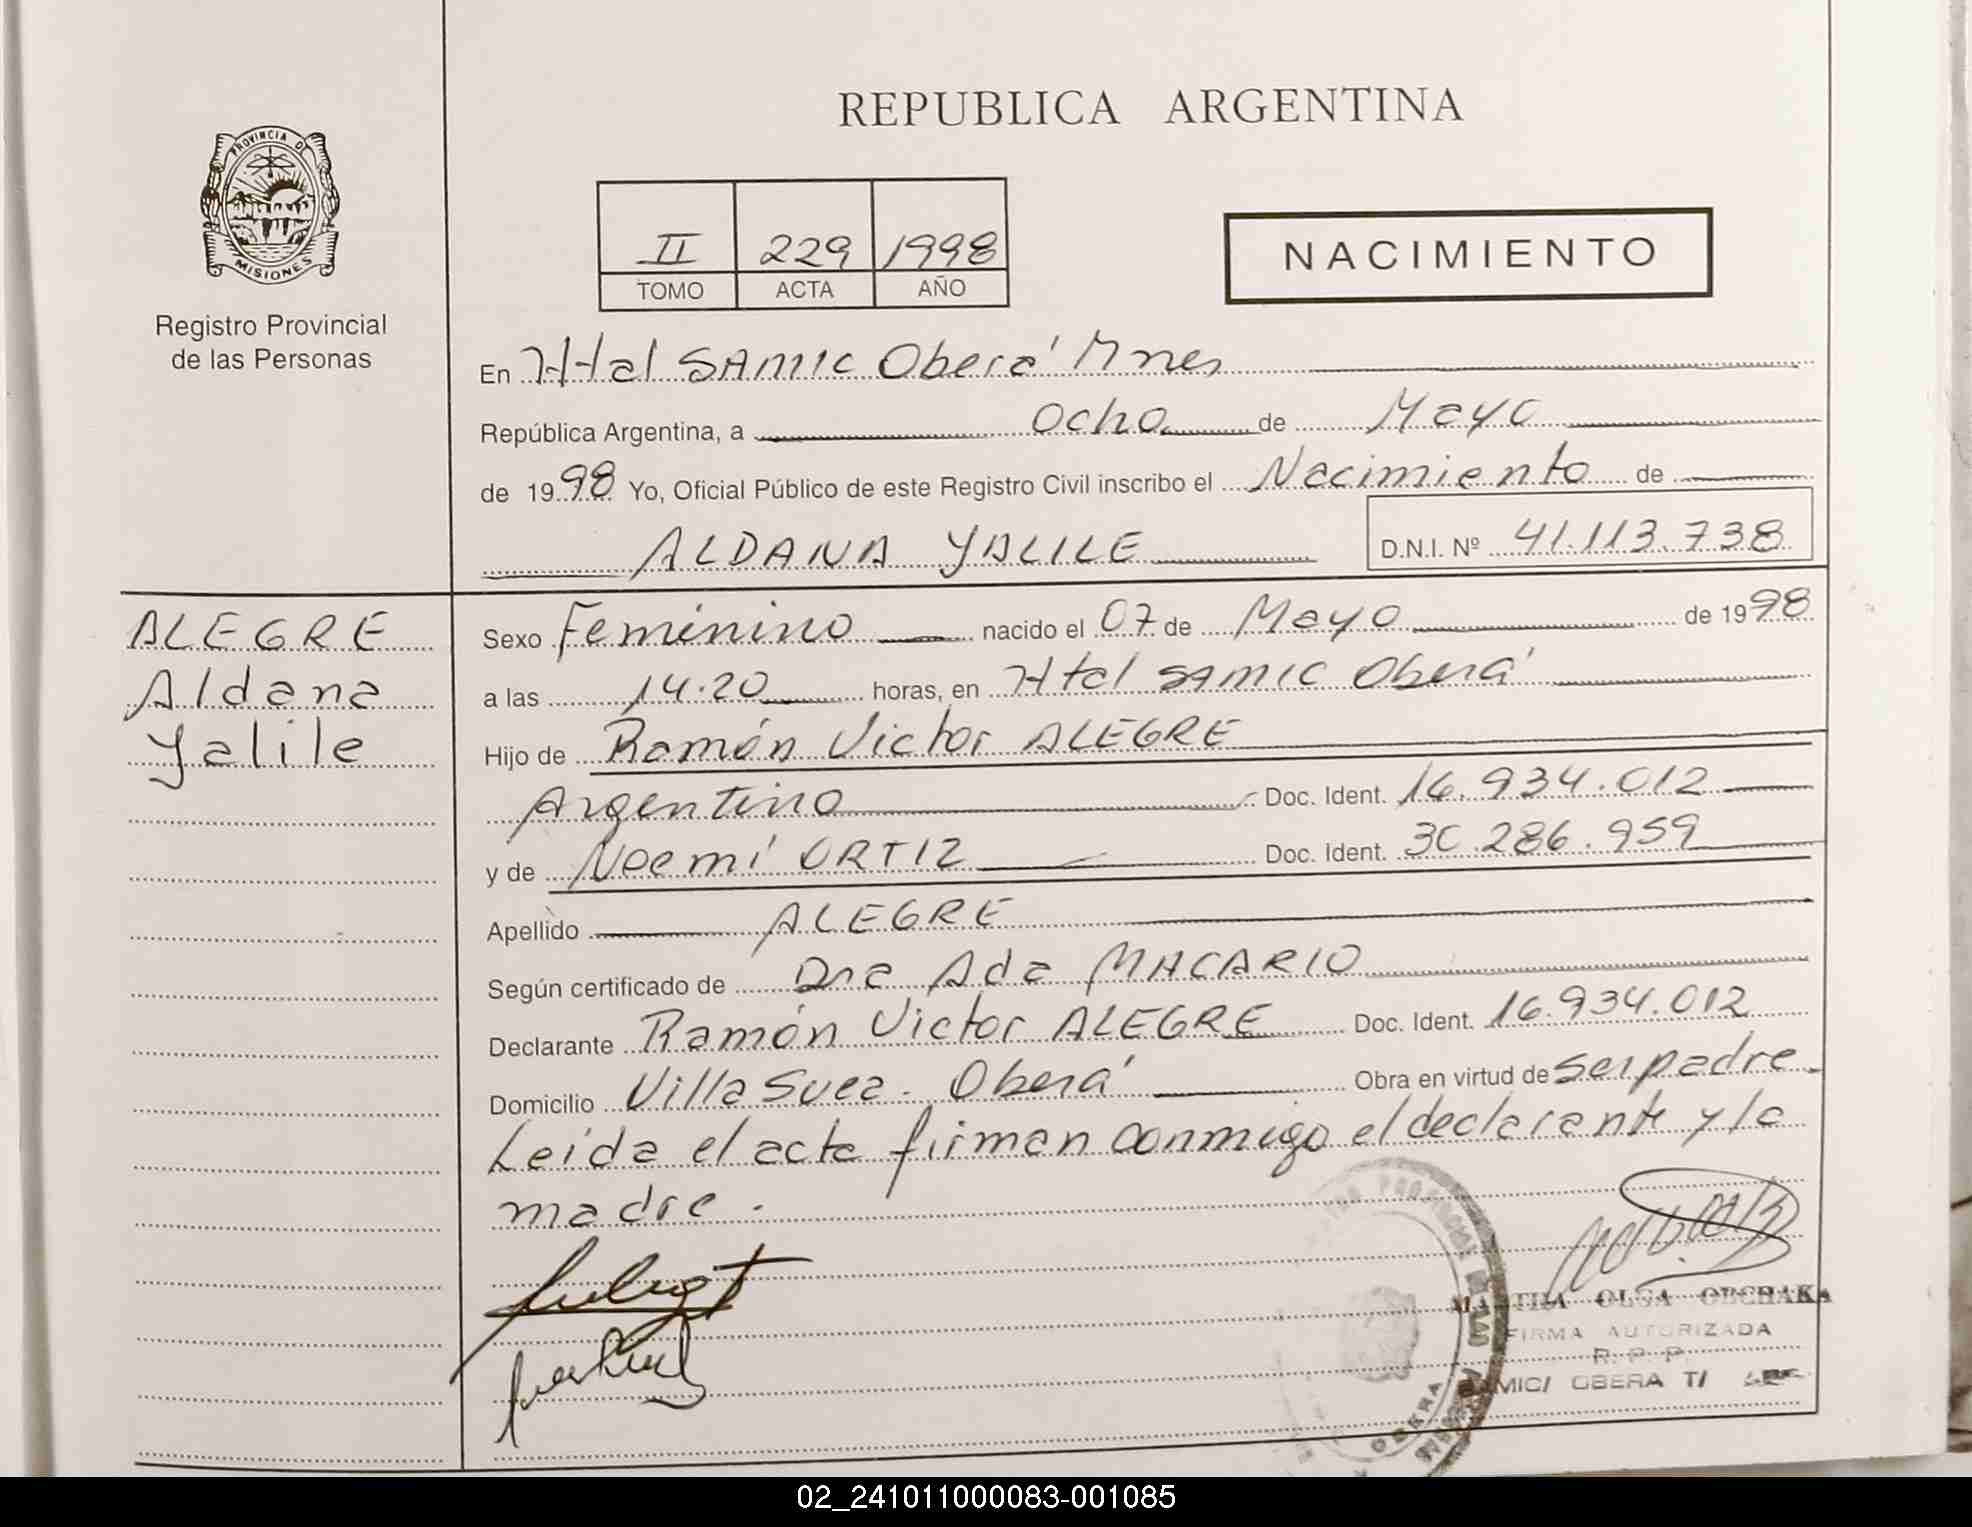 REPUBLICA ARGENTINA
PROVINCIA DE
MISIONES
Registro Provincial
de las Personas
II 229 1998
TOMO ACTA AÑO
NACIMIENTO
En Htal SAMIC Oberá Mnes
República Argentina, a Ocho de Mayo
de 1998 Yo, Oficial Público de este Registro Civil inscribo el Nacimiento de
ALDANA YALILE D.N.I. Nº 41.113.738
ALEGRE
Aldana
Yalile
Sexo Femenino nacido el 07 de Mayo de 1998
a las 14.20 horas, en Htal SAMIC Oberá
Hijo de Ramón Victor ALEGRE
Argentino Doc. Ident. 16.934.012
y de Noemí ORTIZ Doc. Ident. 30.286.959
Apellido ALEGRE
Según certificado de Dra Ada MACARIO
Declarante Ramón Victor ALEGRE Doc. Ident. 16.934.012
Domicilio Villa Suea. Oberá Obra en virtud de ser padre.
Leída el acta firman conmigo el declarante y la
madre.
MARTHA OLGA OBCHAKA
FIRMA AUTORIZADA
R. P. P.
SAMIC/ OBERA T/
OBERA
02_241011000083-001085